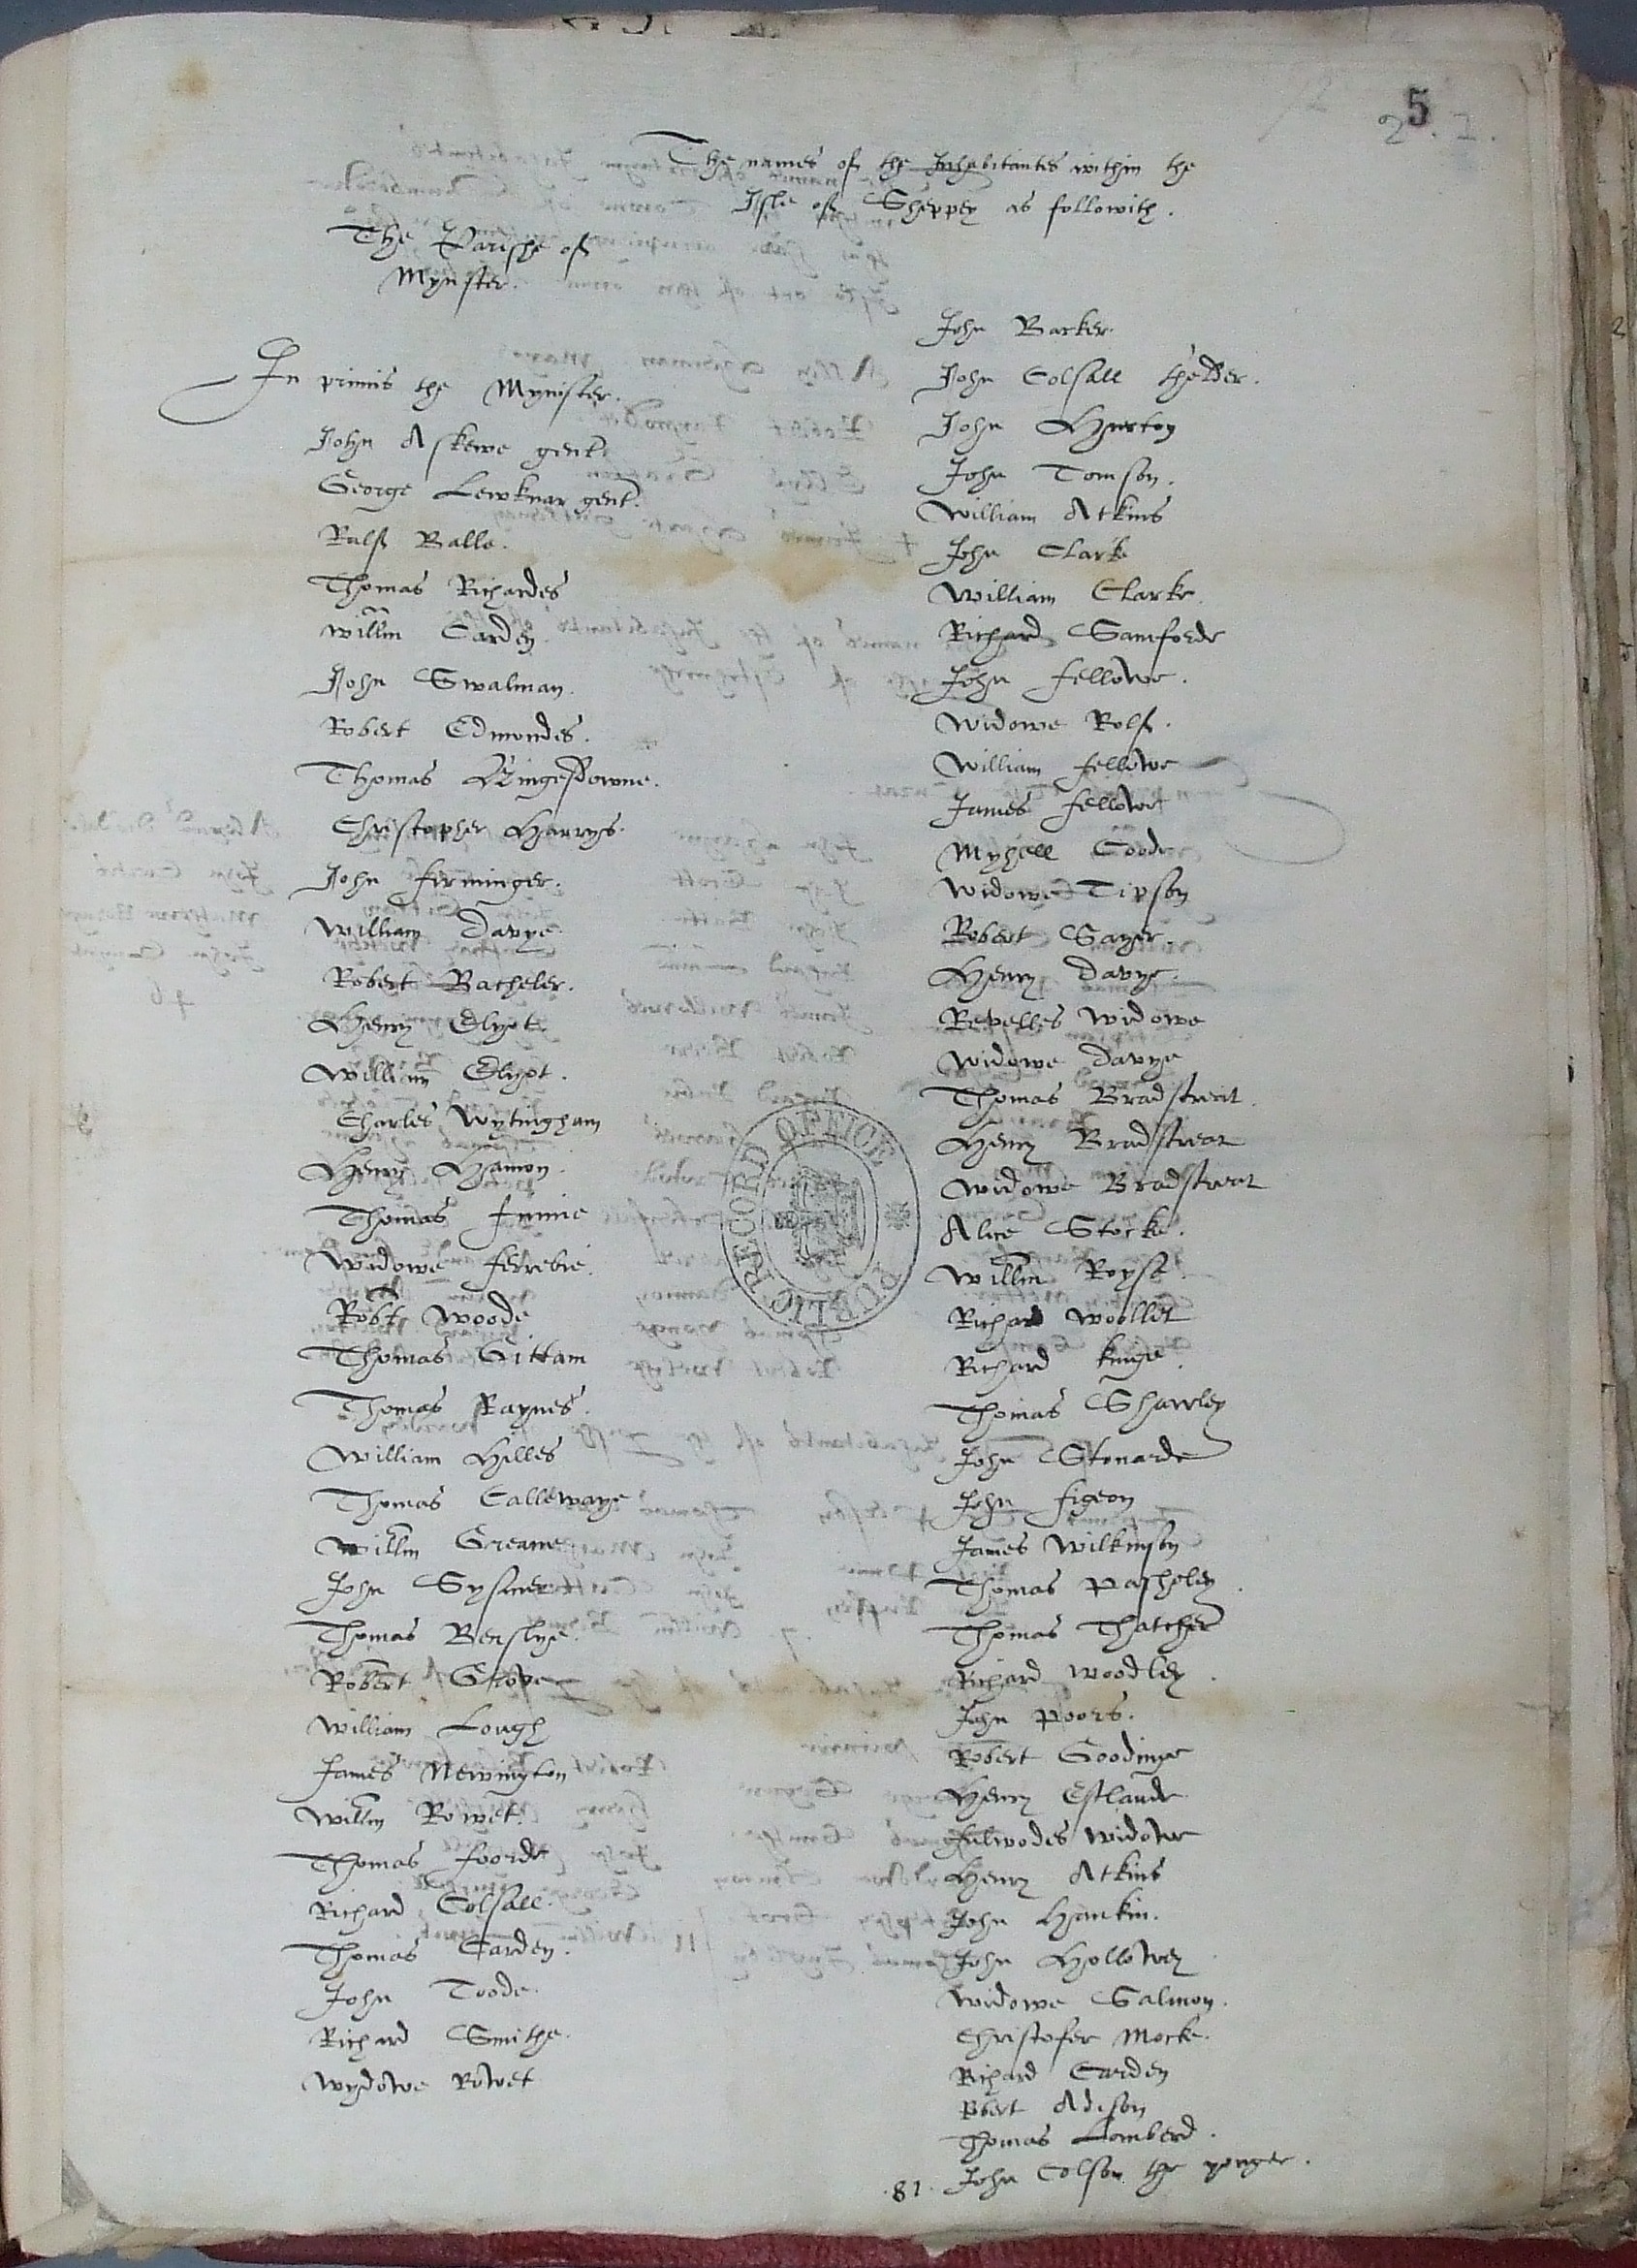 5
2.1.
The names of the Inhabitantes within the
Isle of Sheppey as followith.
The Parishe of
Mynster.
In primis the Mynister.
John Askewe gent
George Lewknar gent.
Ralf Balle.
Thomas Richardes
Willm Carden.
John Swalman.
Robert Edmondes.
Thomas Kingesdowne.
Christopher Harrys.
John Firminger.
William Davye.
Robert Bacheler.
Henry Elyot.
William Elyot.
Charles Wytingham
Henry Hamon.
Thomas
Widowe Ferrebie.
Robt Woode
Thomas Gittam
Thomas Raynes.
William Hilles
Thomas Callewaye
Willm Greame
John Sysmer
Thomas Benslye.
Robert Grove
William Lough
James Newington
Willm Rowet.
Thomas Foorde
Richard Colsall.
Thomas Carden.
John Toode.
Richard Smithe.
Wydowe Rowet
John Barker.
John Colsall thelder.
John Hurton
John Tomson.
William Atkins
John Clark
William Clarke.
Richard Samforde
John Fellowe.
Widowe Rolf.
William Fellowe
James Fellowe
Myhell Goode
Widowe Tipson
Robert Sayer.
Henry Davye.
Revelles Widowe
Widowe Davye
Thomas Bradstreat.
Henry Bradstreat
Widowe Bradstreat
Alice Stocke.
Willm Royse.
Richard Woollet
Richard Kinge.
Thomas Shawley
John Stonarde
John Figeon
James Wilkinson
Thomas Pasheley.
Thomas Thatcher
Richard Woodley.
John Poors.
Robert Goodinge
Henry Estlande
Fulwodes Widowe
Henry Atkins
John Hankin.
John Hollowey
Widowe Salmon.
Christofer Mocke.
Richard Carden
Robert Adison
Thomas Lomberd.
.81. John Colson the yonger.
PUBLIC RECORD OFFICE